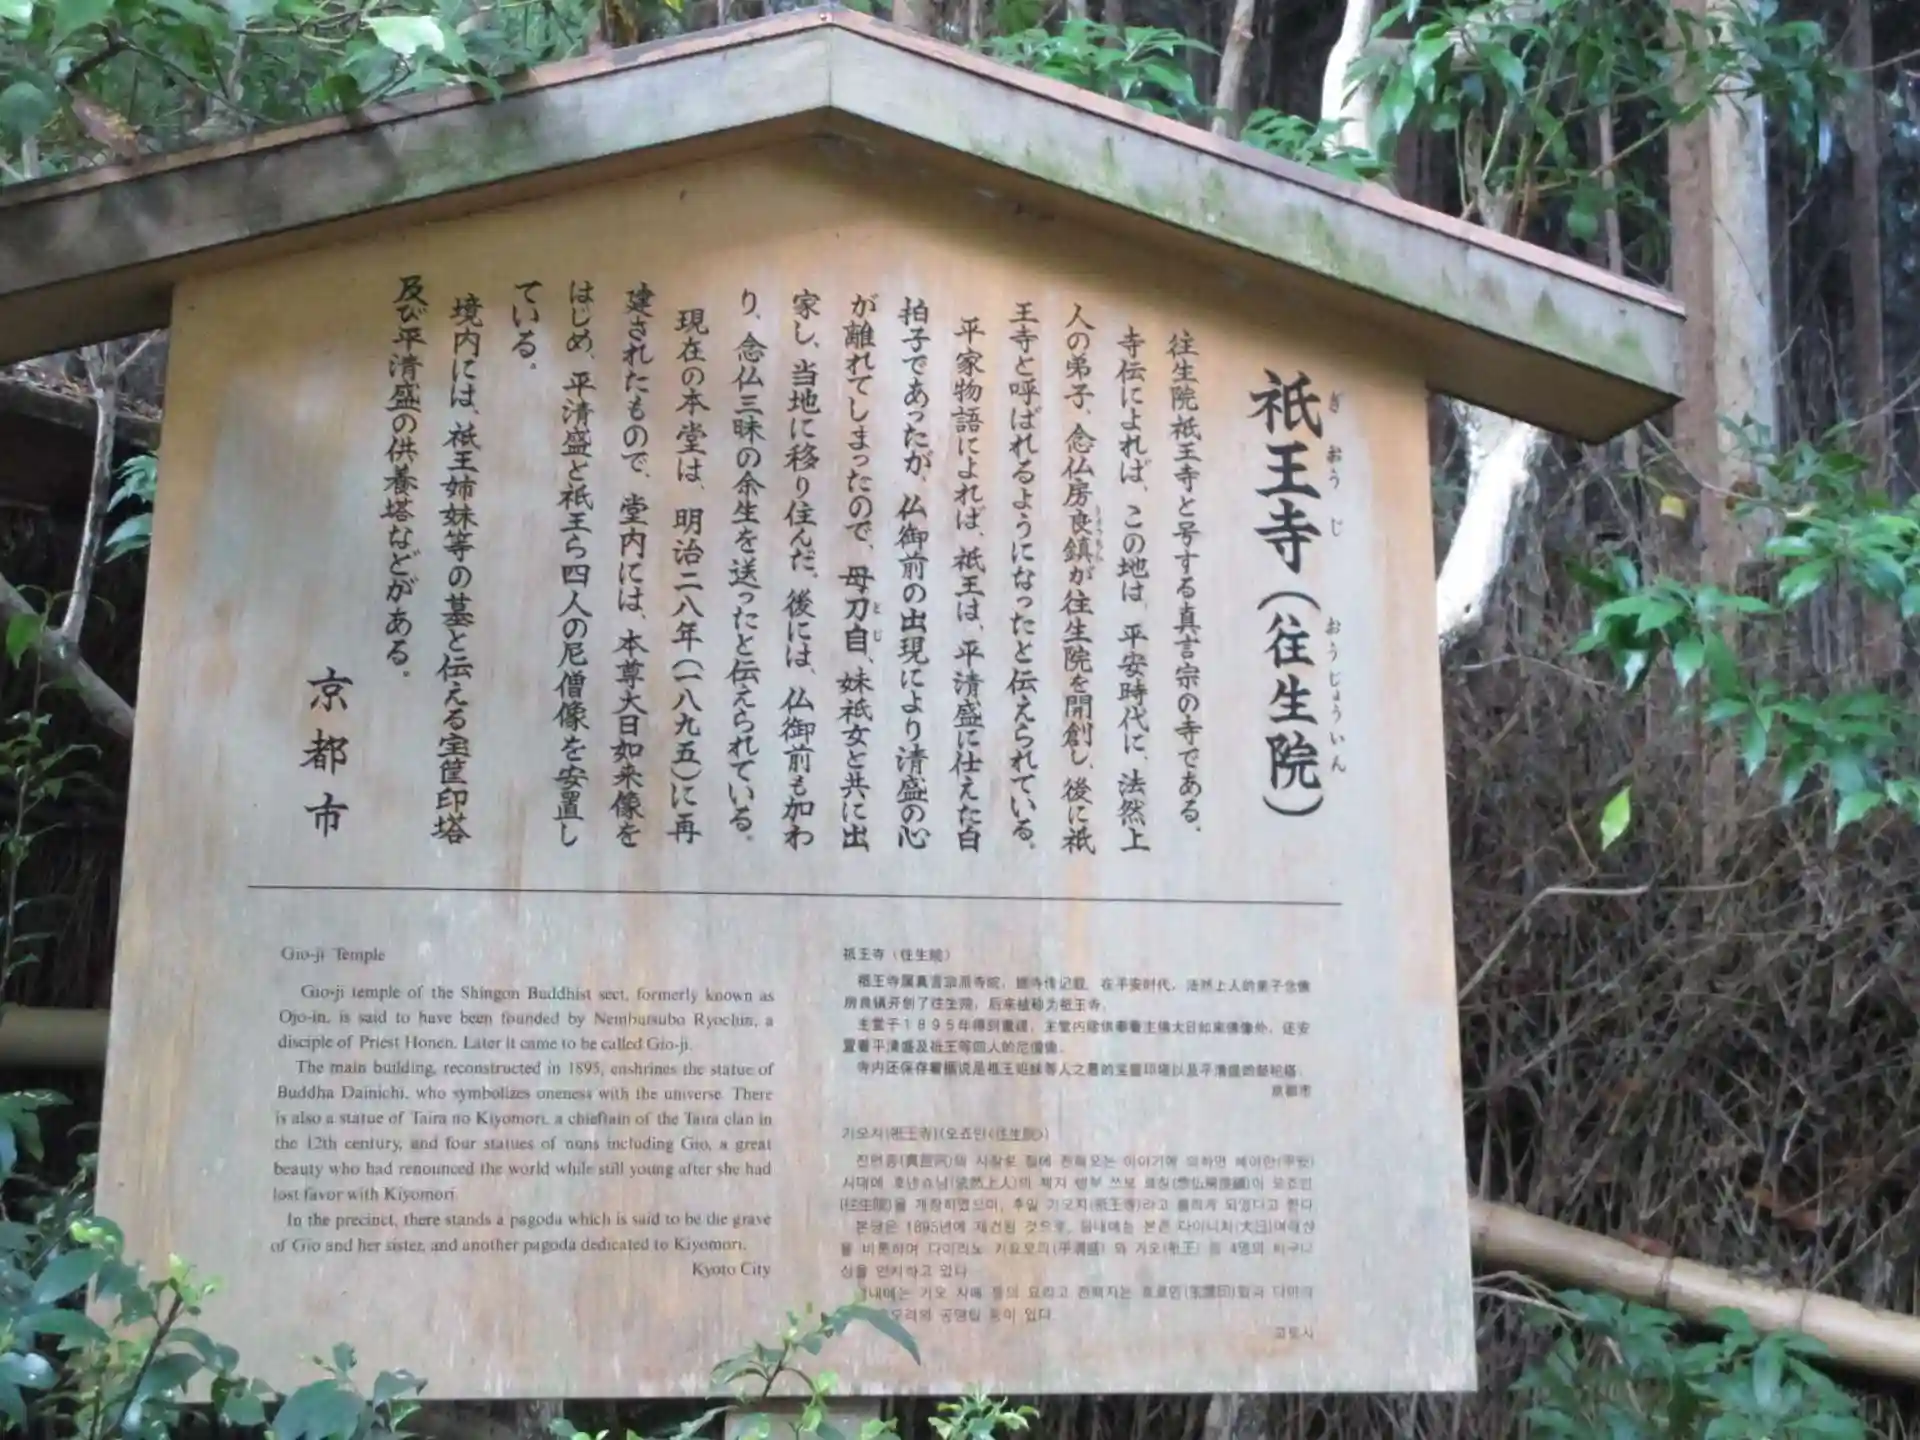 祇王寺(往生院)
ぎおうじ
おうじょういん
往生院祇王寺と号する真言宗の寺である。
寺伝によれば、この地は、平安時代に、法然上
人の弟子、念仏房良鎮が往生院を開創し、後に祇
王寺と呼ばれるようになったと伝えられている。
平家物語によれば、祇王は、平清盛に仕えた白
拍子であったが、仏御前の出現により清盛の心
が離れてしまったので、母刀自、妹祇女と共に出
とじ
家し、当地に移り住んだ。後には、仏御前も加わ
り、念仏三昧の余生を送ったと伝えられている。
現在の本堂は、明治二八年(一八九五)に再
建されたもので、堂内には、本尊大日如来像を
はじめ、平清盛と祇王ら四人の尼僧像を安置し
ている。
境内には、祇王姉妹等の墓と伝える宝筐印塔
及び平清盛の供養塔などがある。
京都市
Gio-ji Temple
Gio-ji temple of the Shingon Buddhist sect, formerly known as
Ojo-in, is said to have been founded by Nembutsubo Ryochin, a
disciple of Priest Honen. Later it came to be called Gio-ji.
The main building, reconstructed in 1895, enshrines the statue of
Buddha Dainichi, who symbolizes oneness with the universe. There
is also a statue of Taira no Kiyomori, a chieftain of the Taira clan in
the 12th century, and four statues of nuns including Gio, a great
beauty who had renounced the world while still young after she had
lost favor with Kiyomori.
In the precinct, there stands a pagoda which is said to be the grave
of Gio and her sister, and another pagoda dedicated to Kiyomori.
Kyoto City
祇王寺（往生院）
祇王寺属真言宗派寺院，据寺传记载，在平安时代，法然上人的弟子念佛
房良镇开创了往生院，后来被称为祇王寺。
主堂于1895年得到重建，主堂内除供奉着主佛大日如来佛像外，还安
置着平清盛及祇王等四人的尼僧像。
寺内还保存着据说是祇王姐妹等人之墓的宝箧印塔以及平清盛的祭祀塔。
京都市
기오지(祇王寺)(오죠인<往生院>)
진언종(真言宗)의 사찰로 절에 전해오는 이야기에 의하면 헤이안(平安)
시대에 호넨쇼닌(法然上人)의 제자 이 오죠인
(往生院)을 개창하였으며, 후일 기오지(祇王寺)라고 불리게 되었다고 한다.
본당은 1895년에 재건된 것으로, 당내에는 본존 다이니치(大日)여래상
을 비롯하여 다이라노 기요모리(平清盛) 와 기오(祇王) 등 4명의 비구니
상을 안치하고 있다.
기오 자매 등의 묘라고 전해지는 다이라
공양탑 등이 있다.
교토시